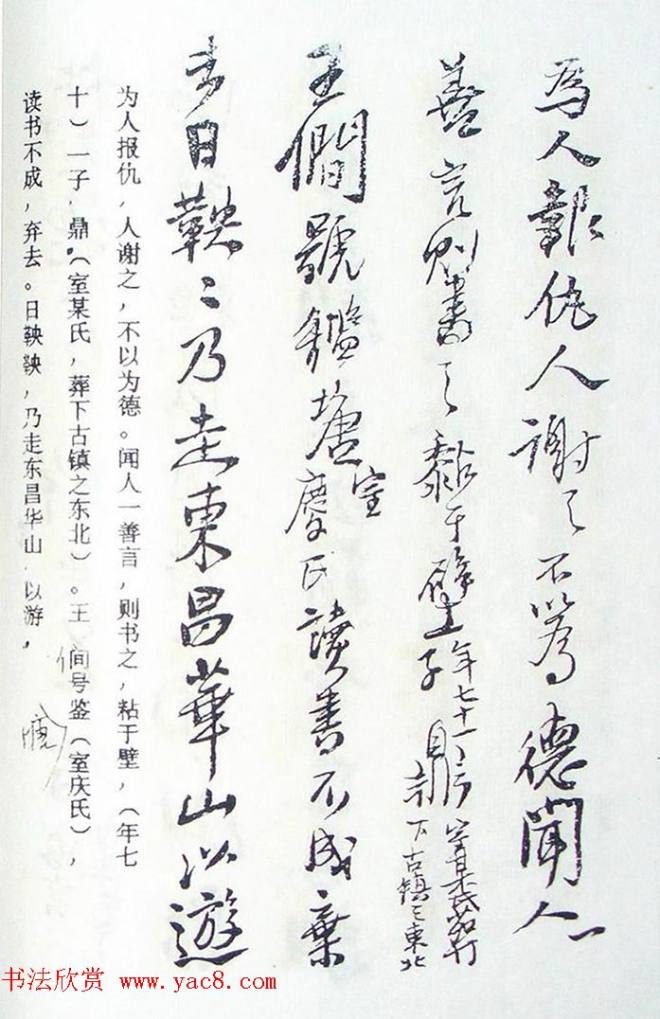 为人報仇人謝之不以為德聞人一
善言則書之黏于壁年七十一子鼎室某氏葬下古鎮之東北
王僩號鑑塘室慶氏讀書不成棄
去日鞅〻乃走東昌華山以遊
为人报仇,人谢之,不以为德。闻人一善言,则书之,粘于壁,(年七
十)一子,鼎(室某氏,葬下古镇之东北)。王僩号鉴塘(室庆氏),
读书不成,弃去。日鞅鞅,乃走东昌华山,以游,
书法欣赏 www.yac8.com